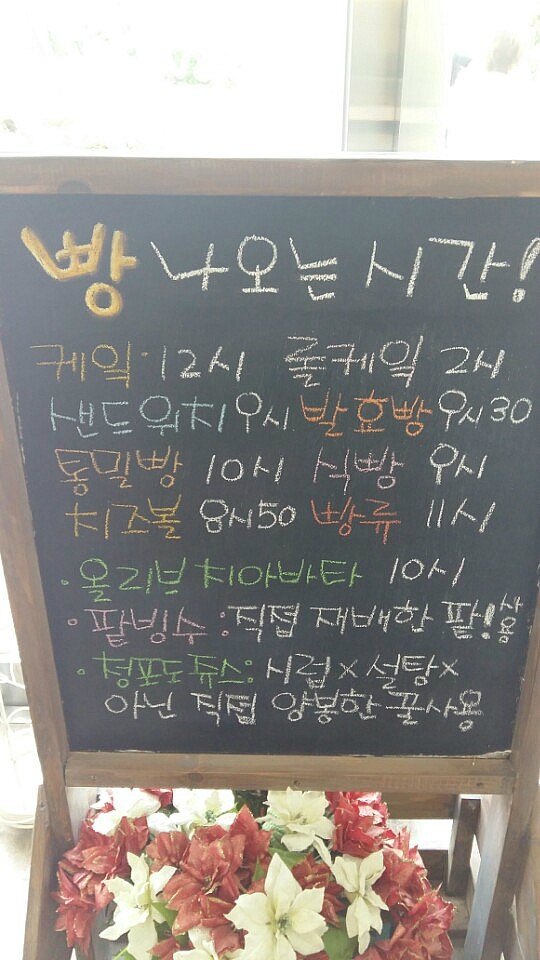 빵 나오는 시간!
케익 12시 롤케익 2시
샌드위치 9시 발효빵 9시30
통밀빵 10시 식빵 9시
치즈볼 8시50 빵류 11시
· 올리브 치아바타 10시
· 팥빙수 : 직접 재배한 팥! 사용
· 청포도쥬스: 시럽x 설탕x
아닌 직접 양봉한 꿀사용